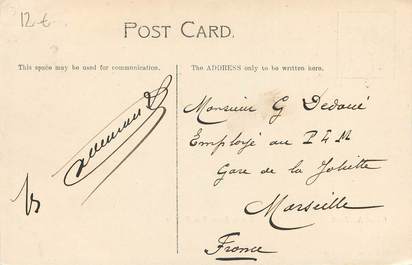 12 €
POST CARD.
This space may be used for communication.
The ADDRESS only to be written here.
Monsieur G Dedoué
Employé au P L M
Gare de la Joliette
Marseille
France